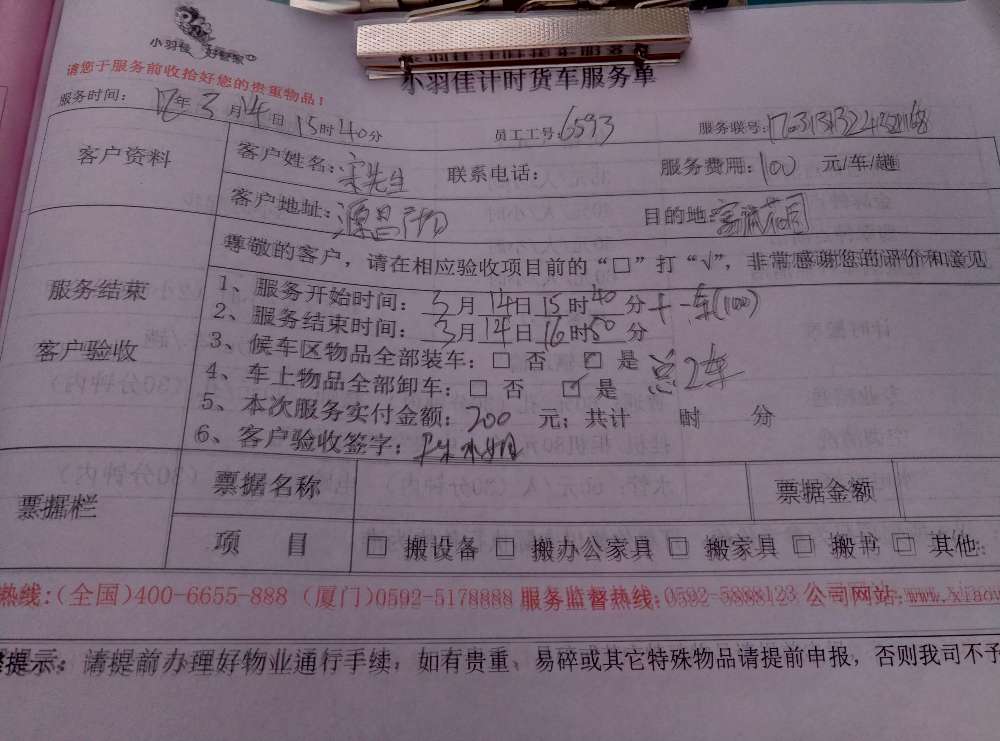 小羽佳 好管家
小羽佳计时货车服务单
请您于服务前收拾好您的贵重物品！
服务时间： 17年 3月14日 15时40分 员工工号：6593 服务联号：
客户资料 客户姓名：宋先生 联系电话： 服务费用：100 元/车/趟
客户地址：源昌 目的地：富 花园
服务结束
客户验收
尊敬的客户，请在相应验收项目前的“□”打“√”，非常感谢您的评价和意见
1、服务开始时间：3月14日15时40分 + 一车(100)
2、服务结束时间：3月14日16时50分
3、候车区物品全部装车：□ 否 ☑ 是
4、车上物品全部卸车：□ 否 ☑ 是 总2车
5、本次服务实付金额：200 元；共计 时 分
6、客户验收签字：
票据栏 票据名称 票据金额
项 目 □ 搬设备 □ 搬办公家具 □ 搬家具 □ 搬书 □ 其他：
热线：(全国)400-6655-888 (厦门)0592-5178888 服务监督热线：0592-5888123 公司网站：www.xiaoy
提示：请提前办理好物业通行手续，如有贵重、易碎或其它特殊物品请提前申报，否则我司不予